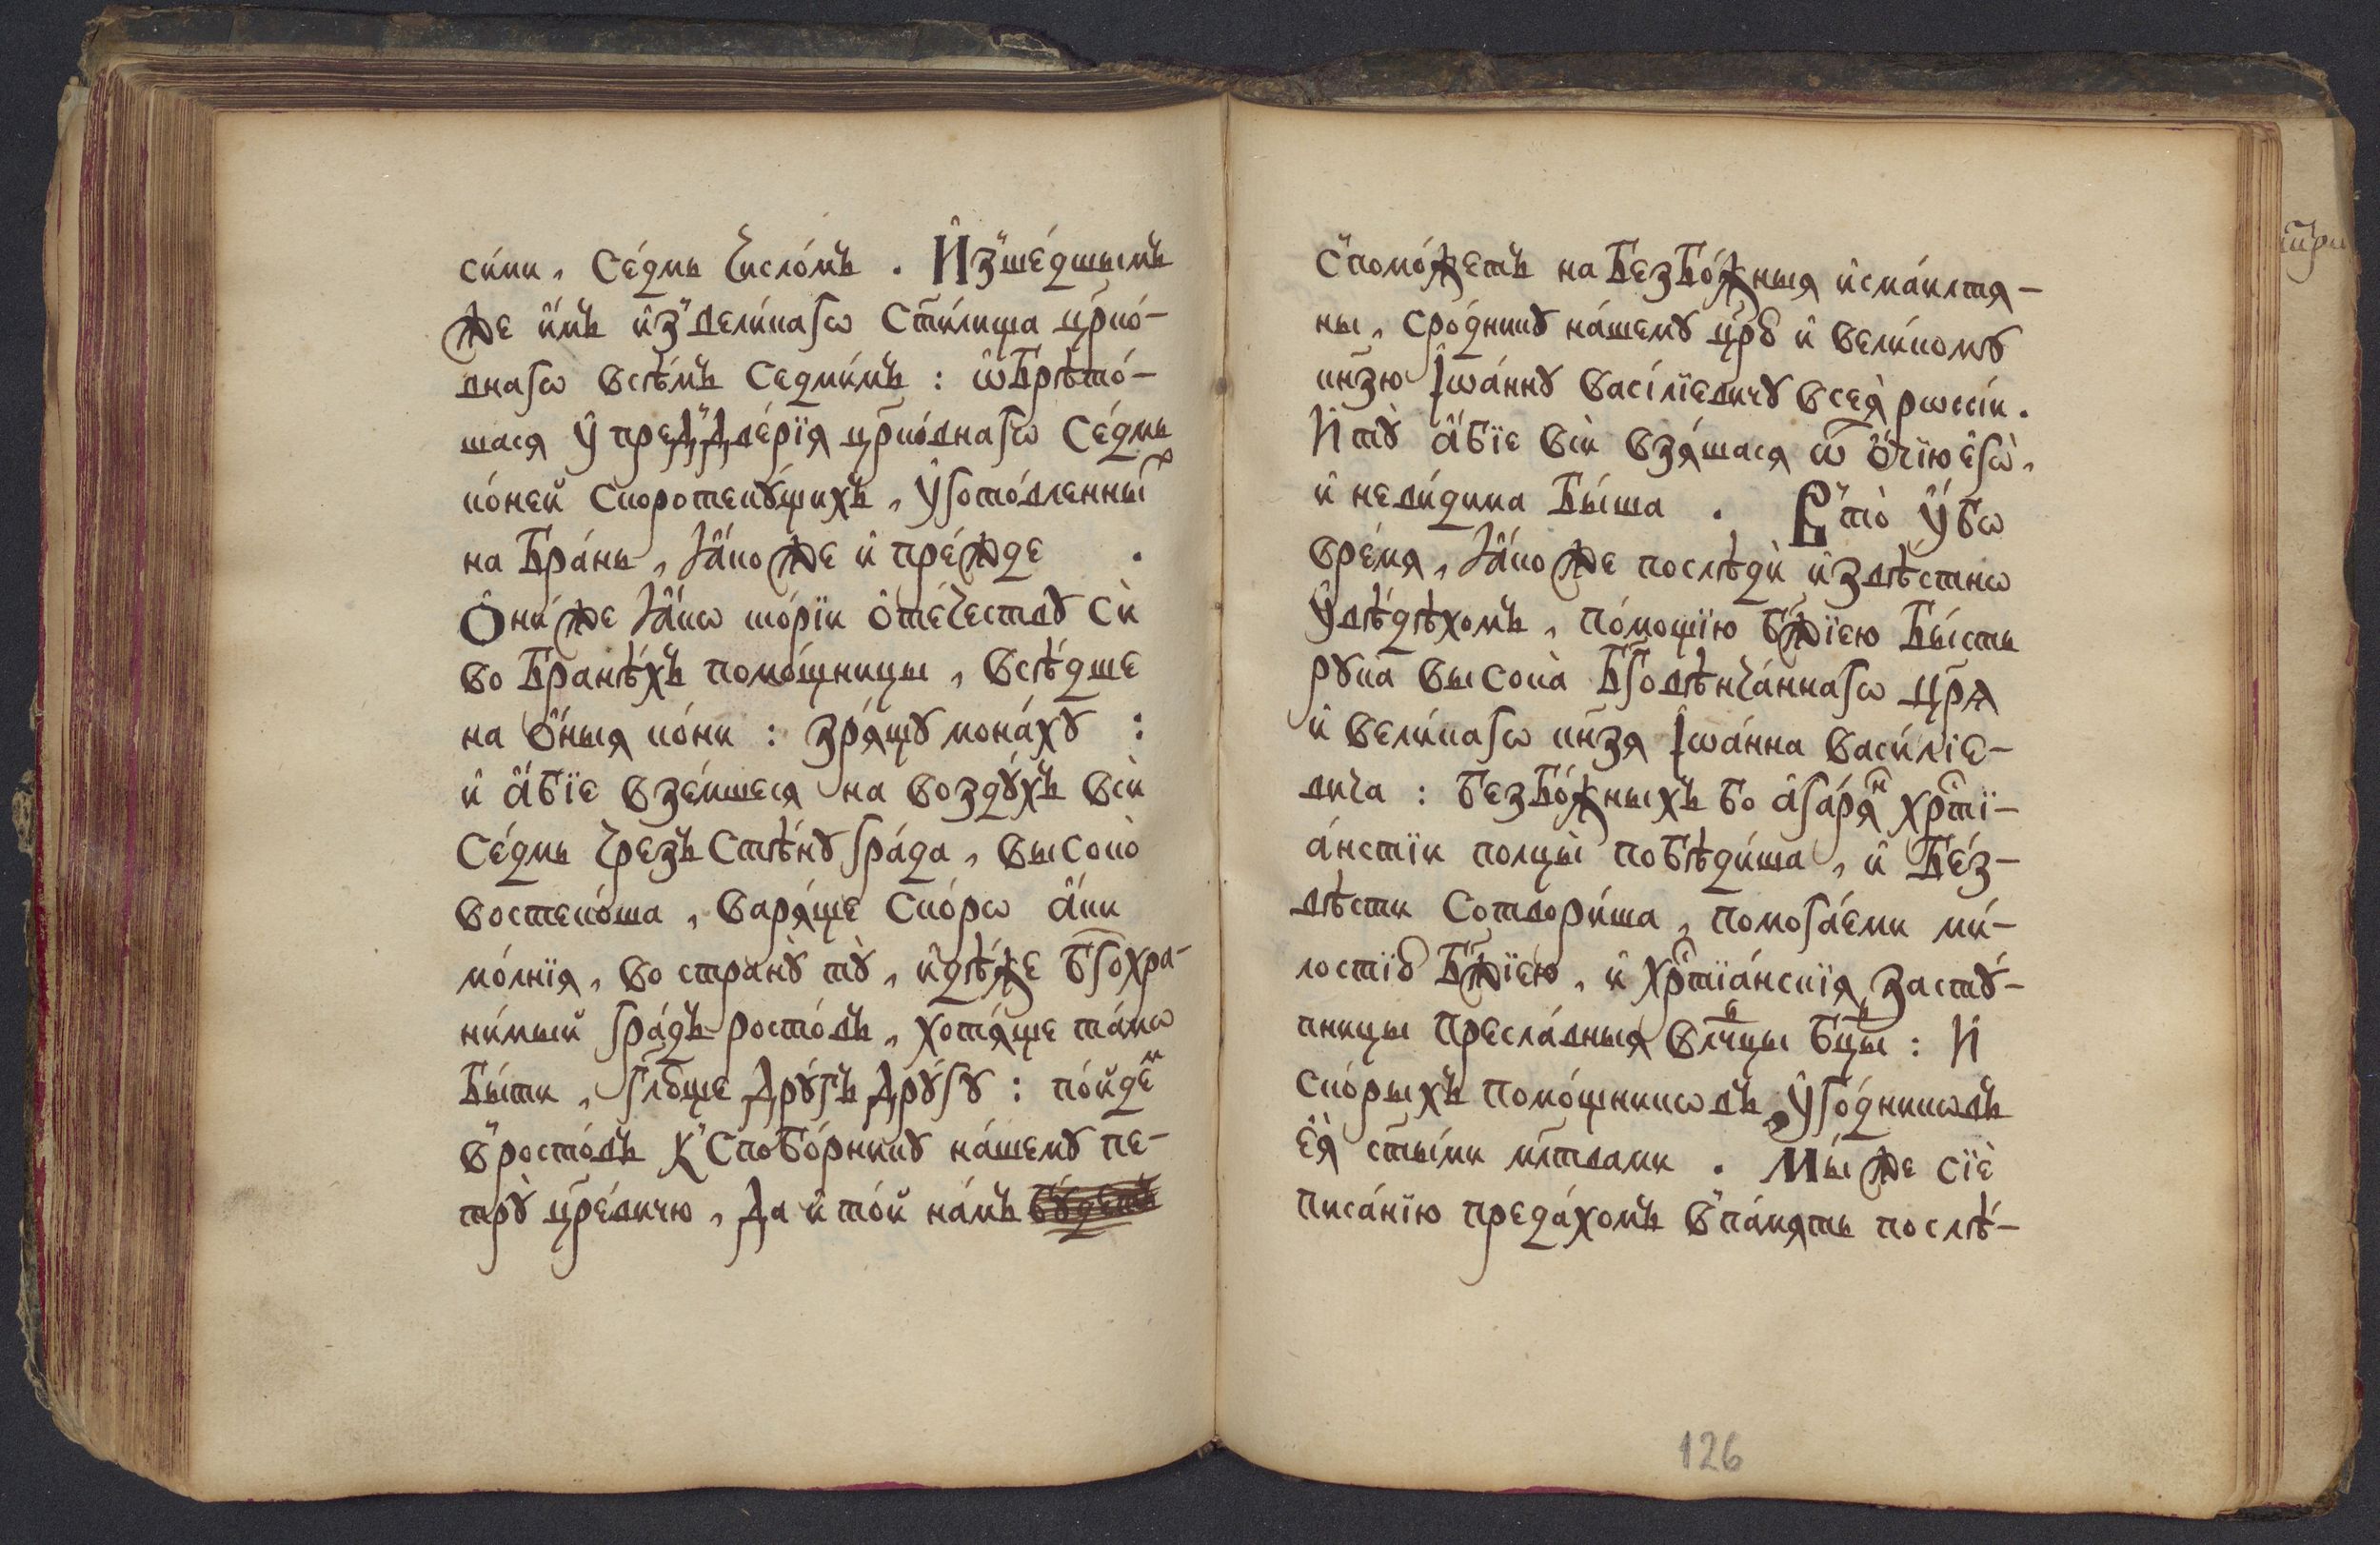 си́ми, Се́дмь число́мъ. И҆зше́дшымъ
же и҆̀мъ и҆з̾ вели́кагѡ ст҃и́лища цр҃ко́-
внагѡ всѣ́мъ седми́мъ : ѡ҆брѣто́-
шася у҆ пред̾две́рїя цр҃ко́внагѡ Се́дмь
ко́ней скоротеку́щихъ, у҆гото́вленныⷯ
на бра́нь, ꙗ҆́коже и҆ пре́жде .
О҆ни́же ꙗ҆́кѡ то́рїи ѻ҆те́честву си́
во бранѣ́хъ помо́щницы, всѣ́дше
на ѻ҆́ныя ко́ни : зря́щу мона́ху :
и҆ а҆́бїе взе́мшеся на возду́хъ всѝ
Се́дмь чрезъ стѣ́ну гра́да, высоко̀
востеко́ша, варя́ще ско́рѡ а҆́ки
мо́лнїя, во страну̀ ту̀, и҆дѣ́же бг҃охра-
ни́мый гра́дъ росто́въ, хотя́ще та́мѡ
бы́ти, гл҃юще дру́гъ дру́гу : по́йдеⷨ
в̾росто́въ к̾ споборнику на́шему пе-
тру̀ цр҃е́вичю, да и҆ то́й на́мъ бу́детъ
с̾помо́жетъ на безбо́жныя и҆сма́илтя-
ны, сро́днику на́шему цр҃ю и҆ вели́кому
кн҃зю І҆ѡа́нну васі́лїевичу всея̀ рѡссі́и.
И ту̀ а҆́бїе всѝ взя́шася ѿ ѻ҆́чїю є҆гѡ̀,
и҆ неви́дима бы́ша . В̾то̀ у҆́бѡ
вре́мя, ꙗ҆́коже послѣдѝ и҆звѣ́стнѡ
у҆вѣ́дѣхомъ, по́мощїю бж҃їею бы́сть
рука̀ высока̀ бг҃овѣнча́ннагѡ цр҃я
и҆ вели́кагѡ кн҃зя І҆ѡа́нна васи́лїе-
вича : безбо́жныхъ бо а҆га́ряⷩ хрⷭ҇тї-
а́нстїи полцы̀ побѣди́ша, и҆ бе́з-
вѣсти сотвори́ша, помога́еми ми́-
лостїю бж҃їею, и҆ хрⷭ҇тїа́нскїя засту́-
пницы пресла́вныя влⷣчцы бцⷣы : И
ско́рыхъ помо́щникѡвъ, у҆го́дникѡвъ
є҆я̀ ст҃ы́ми мл҃твами . Мы́же сїѐ
писа́нїю преда́хомъ в̾па́мять послѣ́-
126